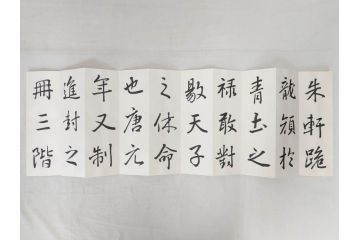 朱軒跪
龍於
青土之
禄敢對
敭天子
之休命
也唐元
年又制
進封之
冊三階